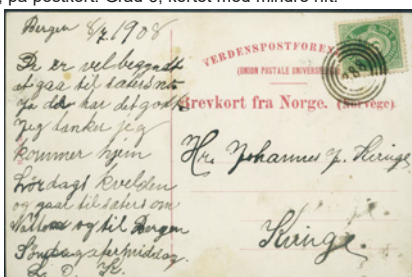 på postkort. Grad 6, kortet med mindre hit.
Bergen 8/7 1908
De er vel begyndt
at gaa til sæters nå
Ja der har det godt
Jeg tænker jeg
kommer hjem
Lördags kvelden
og gaar til sæters om
Natten og til Bergen
Söndags formiddag.
VERDENSPOSTFORENI
(UNION POSTALE UNIVERSELLE)
Brevkort fra Norge. (Norvège).
Hr. Johannes J. Kvinge
Kvinge.